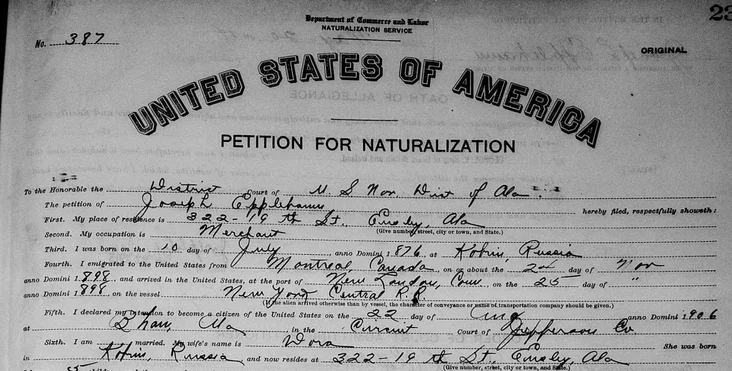 23
Department of Commerce and Labor
NATURALIZATION SERVICE
No. 387
ORIGINAL
UNITED STATES OF AMERICA
PETITION FOR NATURALIZATION
To the Honorable the District Court of U S Nor. Dist of Ala.
The petition of Joseph Epplebaum hereby filed, respectfully showeth:
First. My place of residence is 322-19th St. Ensley, Ala
(Give number, street, city or town, and State.)
Second. My occupation is Merchant
Third. I was born on the 10 day of July anno Domini 1 876 at Kobrin, Russia
Fourth. I emigrated to the United States from Montreal, Canada on or about the 24 day of Nov
anno Domini 1 898 and arrived in the United States, at the port of New London, Conn. on the 25 day of "
anno Domini 1 898 on the vessel New York Central R.R.
(If the alien arrived otherwise than by vessel, the character of conveyance or name of transportation company should be given.)
Fifth. I declared my intention to become a citizen of the United States on the 22 day of Aug anno Domini 1 906
at Bham, Ala in the Circuit Court of Jefferson Co
Sixth. I am married. My wife's name is Dora She was born
in Kobrin, Russia and now resides at 322-19th St, Ensley, Ala
(Give number, street, city or town, and State.)